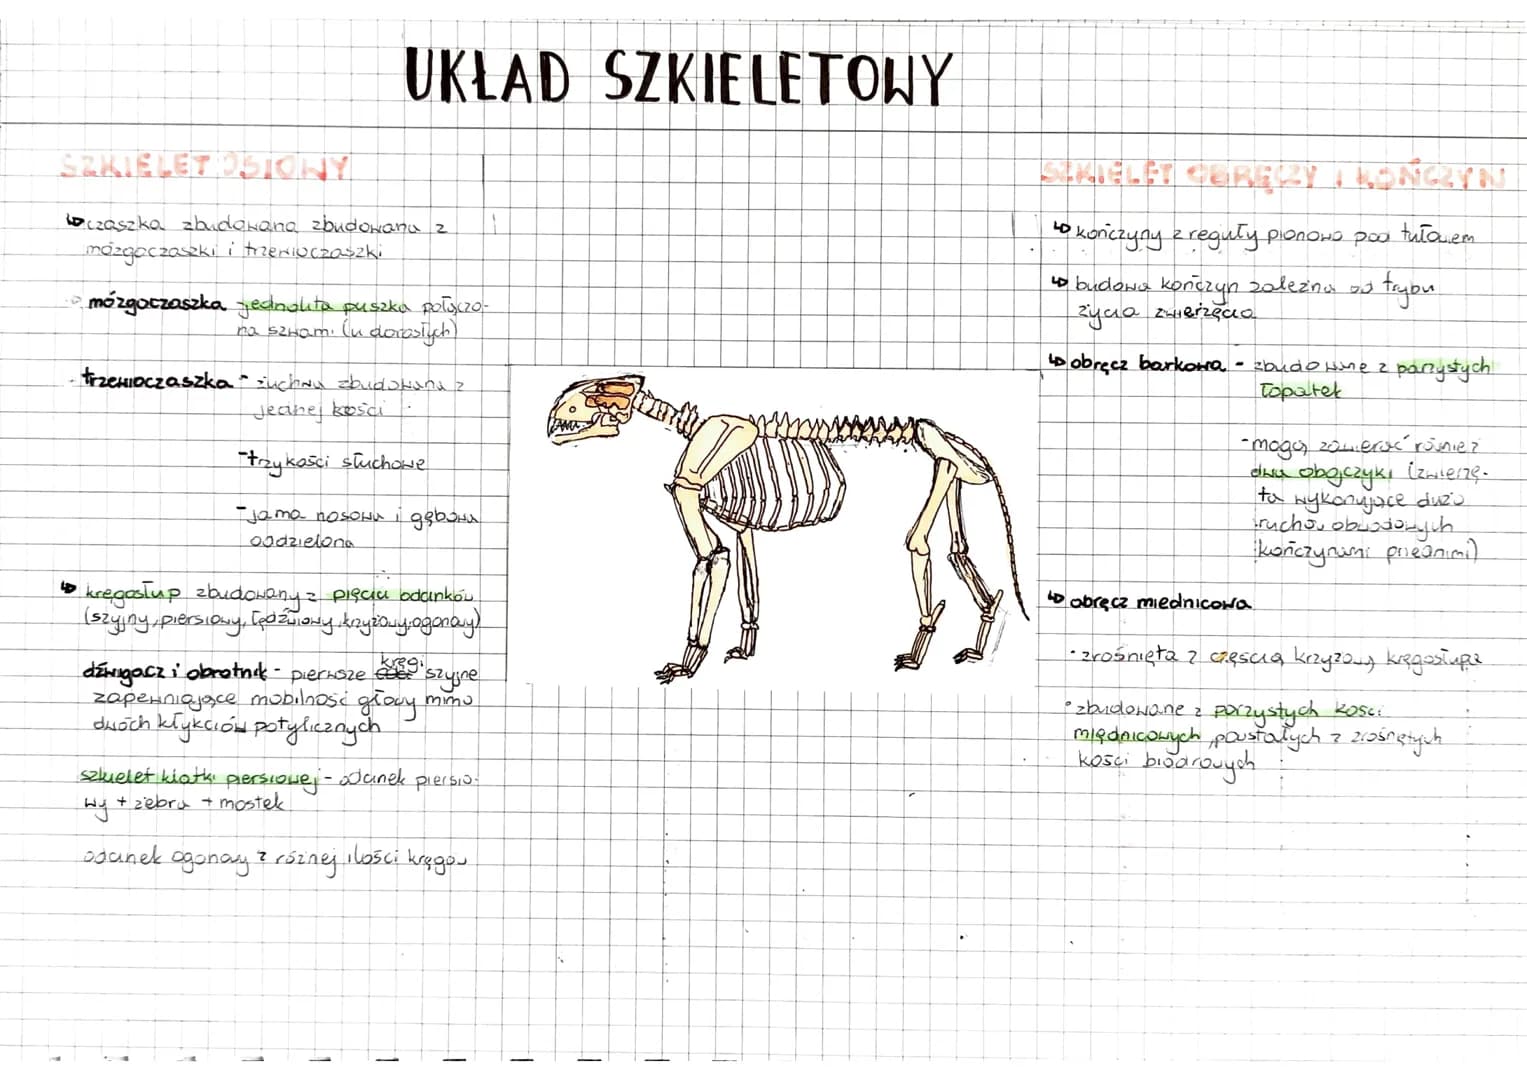 UKŁAD SZKIELETOWY
SZKIELET OSIOWY
czaszka zbudowana zbudowana z
mózgoczaszki i trzewioczaszki
mózgoczaszka jednolita puszka połączo-
na szwami (u dorosłych)
- trzewioczaszka - żuchwa zbudowana z
jednej kości
- trzy kości słuchowe
- jama nosowa i gębowa
oddzielona
kręgosłup zbudowany z pięciu odcinków
(szyjny, piersiowy, lędźwiowy, krzyżowy, ogonowy)
kręgi
dźwigacz i obrotnik - pierwsze szyjne
zapewniające mobilność głowy mimo
dwóch kłykciów potylicznych
szkielet klatki piersiowej - odcinek piersio-
wy + żebra + mostek
odcinek ogonowy z różnej ilości kręgów
SZKIELET OBRĘCZY I KOŃCZYN
kończyny z reguły pionowo pod tułowiem
budowa kończyn zależna od trybu
życia zwierzęcia
obręcz barkowa - zbudowane z parzystych
łopatek
- mogą zawierać również
dwa obojczyki (zwierzę-
ta wykonujące dużo
ruchów obwodowych
kończynami przednimi)
obręcz miednicowa
• zrośnięta z częścią krzyżową kręgosłupa
• zbudowane z parzystych kości
miednicowych, powstałych z zrośniętych
kości biodrowych